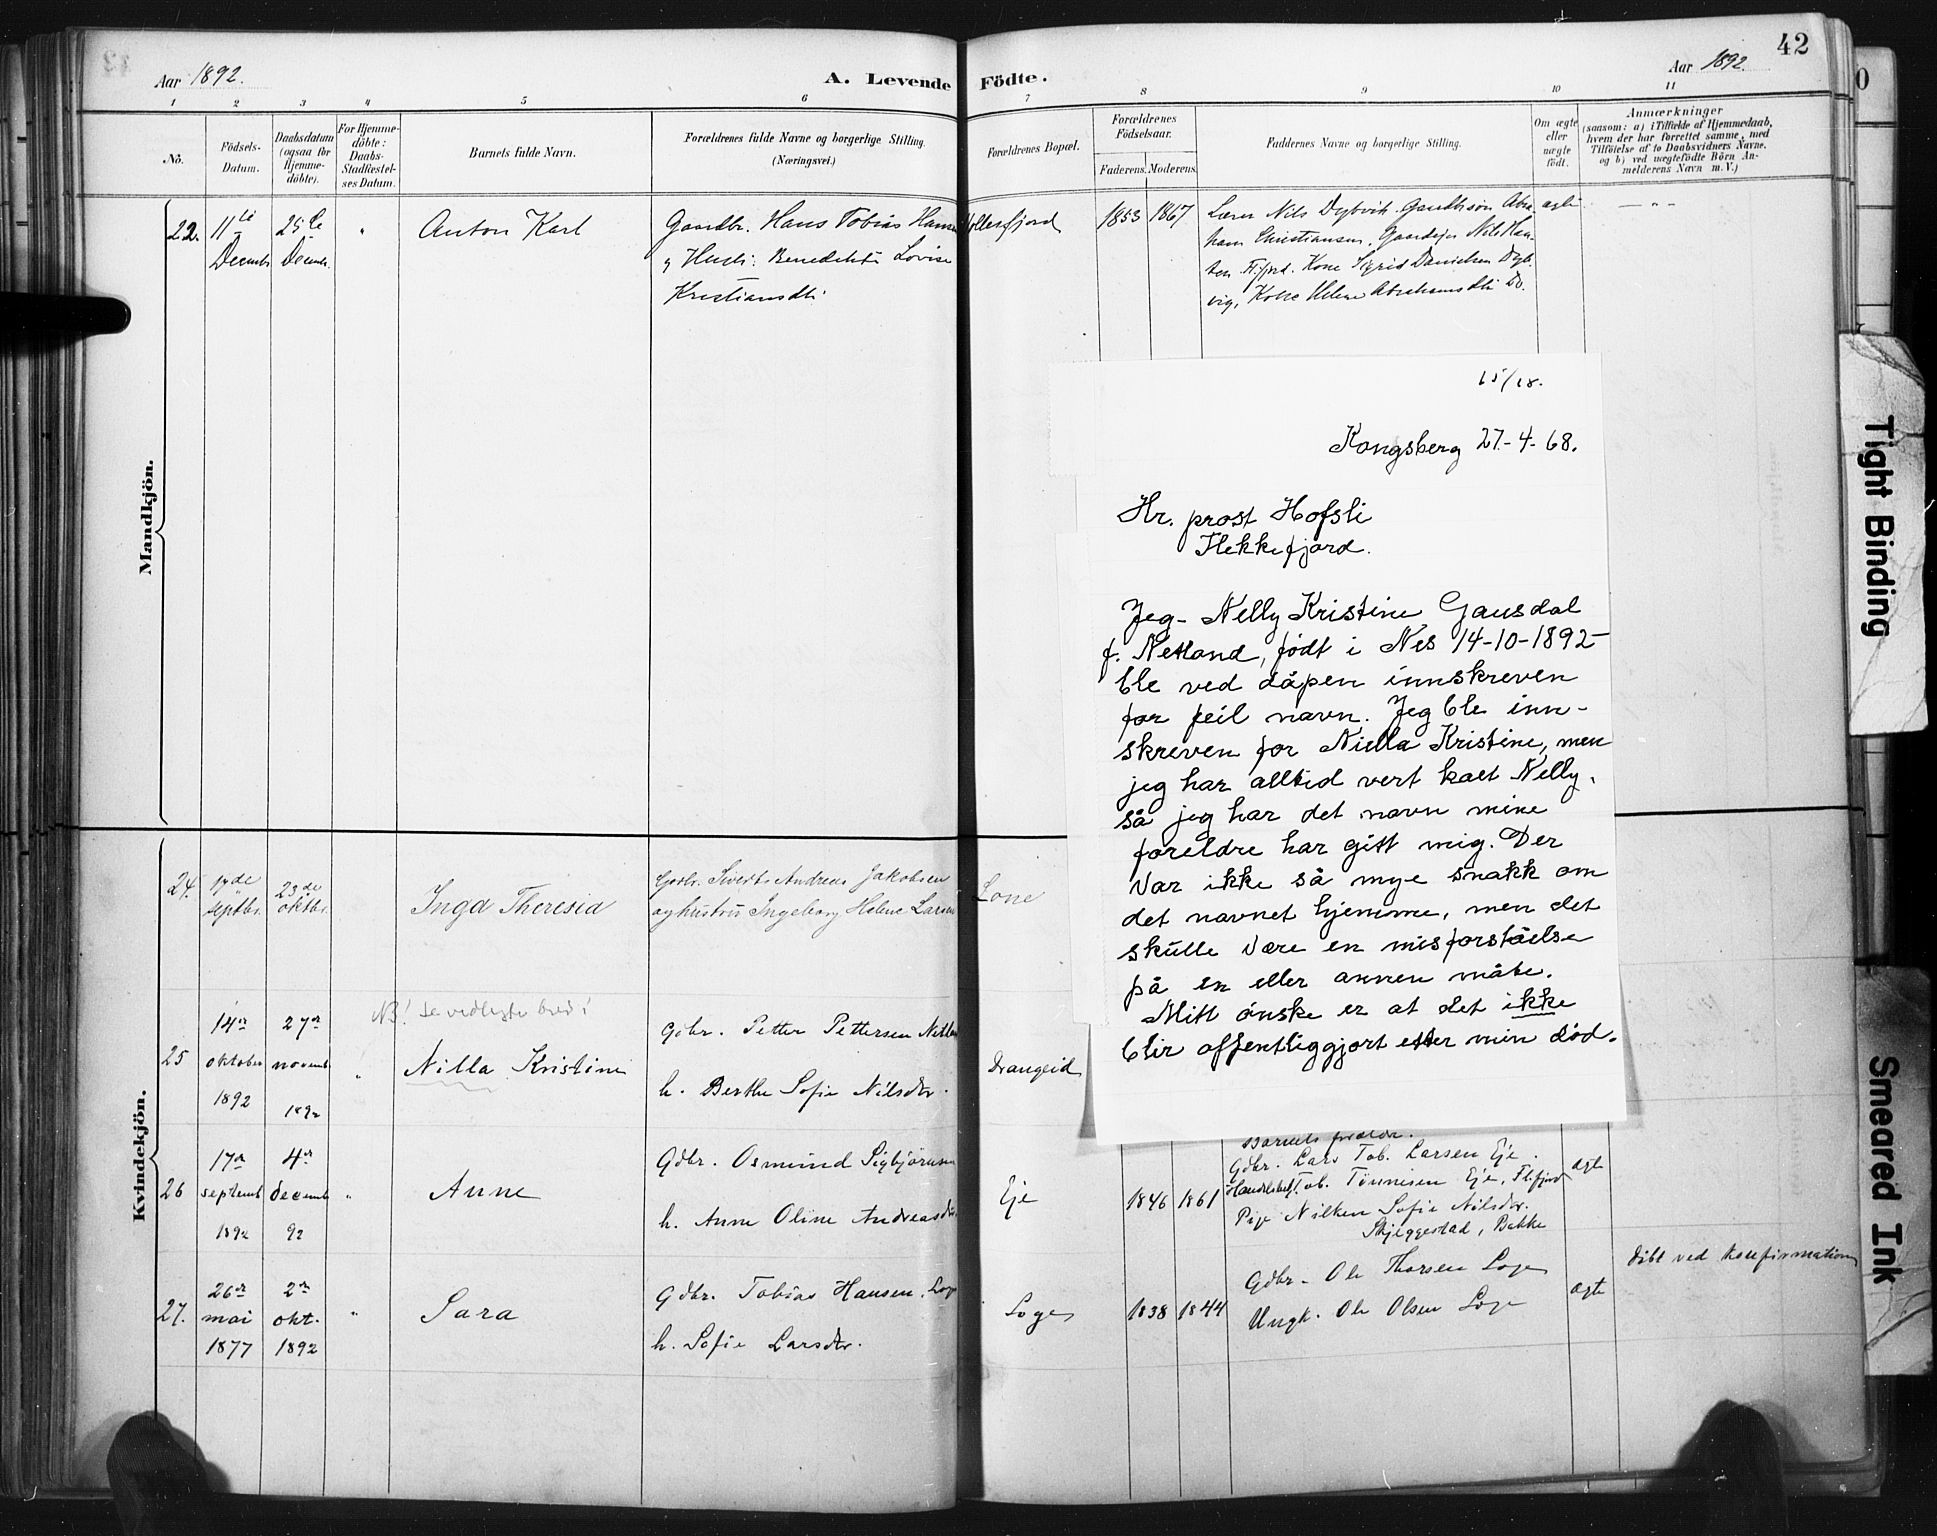 42
Aar 1892.
A. Levende Födte.
Aar 1892.
1 2 3 4 5 6 7 8 9 10 11
No.
Födsels-
Datum.
Daabsdatum
(ogsaa for
Hjemme-
döbte).
For Hjemme-
döbte:
Daabs-
Stadfæstel-
ses Datum.
Barnets fulde Navn.
Forældrenes fulde Navne og borgerlige Stilling.
(Næringsvei.)
Forældrenes Bopæl.
Forældrenes
Födselsaar.
Faderens. Moderens.
Faddernes Navne og borgerlige Stilling.
Om ægte
eller
uægte
födt.
Anmærkninger
(saasom: a) i Tilfælde af Hjemmedaab,
hvem der har forrettet samme, med
Tilföielse af to Daabsvidners Navne.
og b) ved uægtefödte Börn An-
melderens Navn m. V.)
Mandkjön.
22.
11te
Decembr
25de
Decembr.
"
Anton Karl
Gaardbr. Hans Tobias Hansen
og Hustr: Benedikte Lovise
Kristiansdtr.
1853 1867
Lærer Nils Dybvik. Gaardbrsøn Abra-
ham Christiansen. Gaardejer Nils Han-
sen Fl.fjord. Kone Sigrid Danielsen Dyb-
vig, Kone Helene Abrahamsdtr Do.
ægte
— " —
15/68.
Kongsberg 27.-4-68.
Hr. prost Hofsli
Flekkefjord.
Jeg - Nelly Kristine Gausdal
f. Netland, født i Nes 14-10-1892 -
ble ved dåpen innskreven
for feil navn. Jeg ble inn-
skreven for Niella Kristine, men
jeg har alltid vert kalt Nelly.
så jeg har det navn mine
foreldre har gitt mig. Der
var ikke så mye snakk om
det navnet hjemme, men det
skulle være en misforståelse
på en eller annen måte.
Mitt ønske er at det ikke
blir offentliggjort etter min død.
Kvindekjön.
24.
17de
septbr.
23de
oktbr.
Inga Theresia
Grdbr. Sivert Andreas Jakobsen
og hustru Ingeborg Helene Larsen
Lone
NB! se vedlagte brev!
25
14de
oktober
1892
27de
novemb
1892
"
Nilla Kristine
Gdbr. Petter Pettersen Netland
h. Berthe Sofie Nilsdtr.
Drangeid
26
17de
septemb
1892
4de
decemb
92
"
Anne
Gdbr. Osmund Sigbjörnsen
h. Anne Oline Andreasdtr.
Eje
1846 1861
Barnets forældre.
Gdbr. Lars Tob. Larsen Eje.
Tob. Tönnesen Eje, Fl.fjord
Pige Nilken Sofie Nilsdtr.
Skjeggestad, Bakke
ægte
27.
26de
mai
1877
2de
okt.
1892
"
Sara
Gdbr. Tobias Hansen Loge
h. Sofie Larsdtr.
Loge
1838 1844
Gdbr. Ole Thorsen Loge
Ungk. Ole Olsen Loge
ægte
döbt ved konfirmation
Tight Binding
Smeared Ink